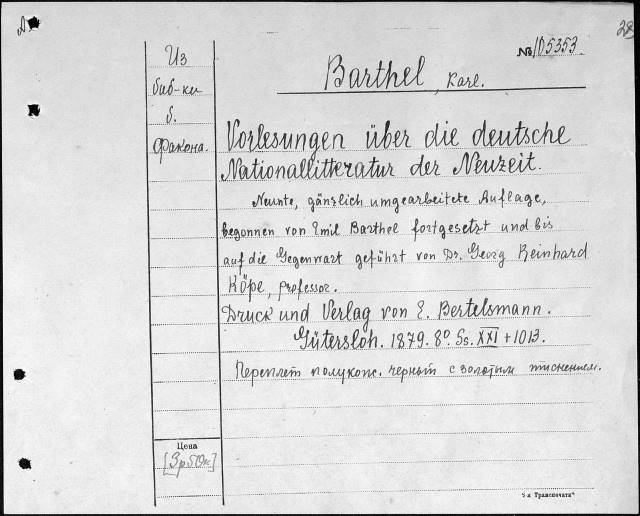 28
№ 105353.
Barthel, Karl.
Из
биб-ки
б.
Фалона.
Vorlesungen über die deutsche
Nationallitteratur der Neuzeit.
Neunte, gänzlich umgearbeitete Auflage,
begonnen von Emil Barthel fortgesetzt und bis
auf die Gegenwart geführt von Dr. Georg Reinhard
Köpe, professor.
Druck und Verlag von C. Bertelsmann.
Gütersloh. 1879. 8º. Ss. XXI + 1013.
Переплет полукож. черный с золотым тиснением.
Цена
[3р50к]
"5-я Транспечати"